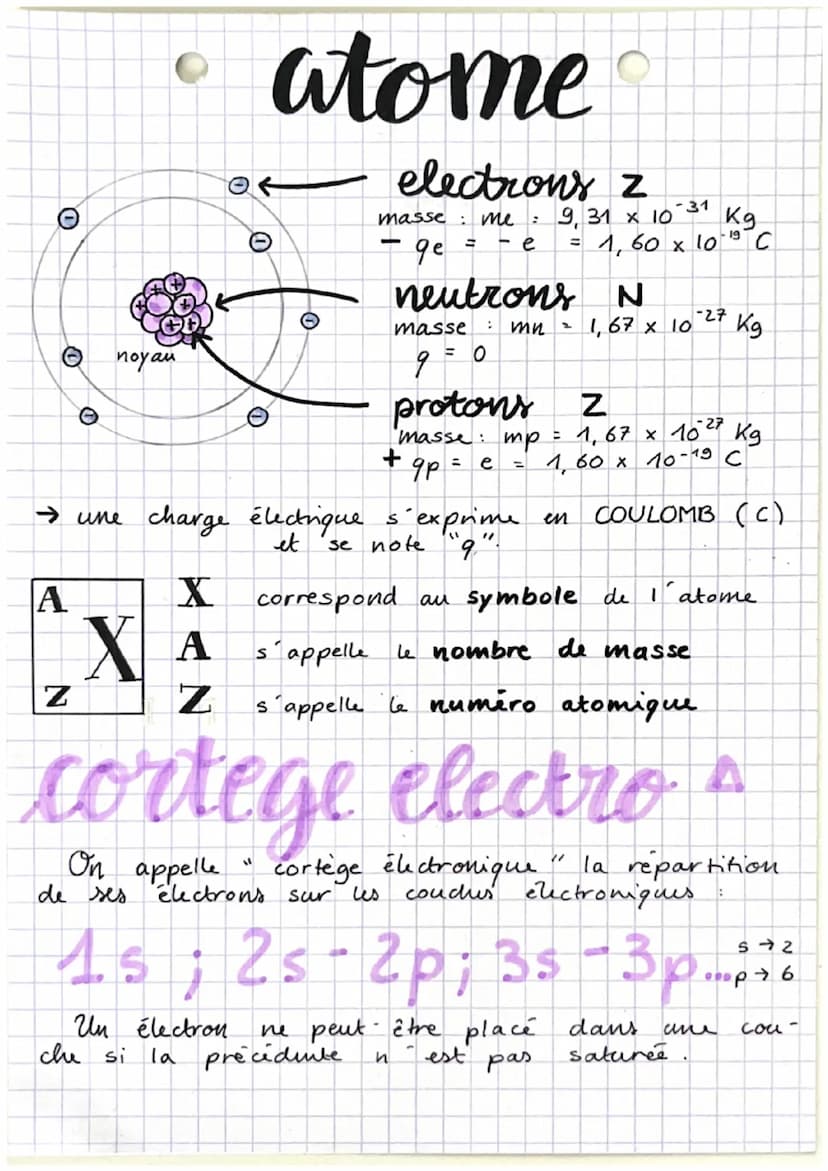 atome
electrons Z
masse : me : 9,31 x 10⁻³¹ Kg
- qe = - e = 1,60 x 10⁻¹⁹ C
neutrons N
masse : mn = 1,67 x 10⁻²⁷ Kg
q = 0
noyau
protons Z
masse : mp = 1,67 x 10⁻²⁷ Kg
+ qp = e = 1,60 x 10⁻¹⁹ C
→ une charge électrique s'exprime en COULOMB (C)
et se note "q".
A X Z
X correspond au symbole de l'atome
A s'appelle le nombre de masse
Z s'appelle le numéro atomique
cortege electro
On appelle "cortège électronique" la répartition
de ses électrons sur les couches électroniques :
1s ; 2s - 2p ; 3s - 3p...
s → 2
p → 6
Un électron ne peut être placé dans une cou-
che si la précédente n'est pas saturée.